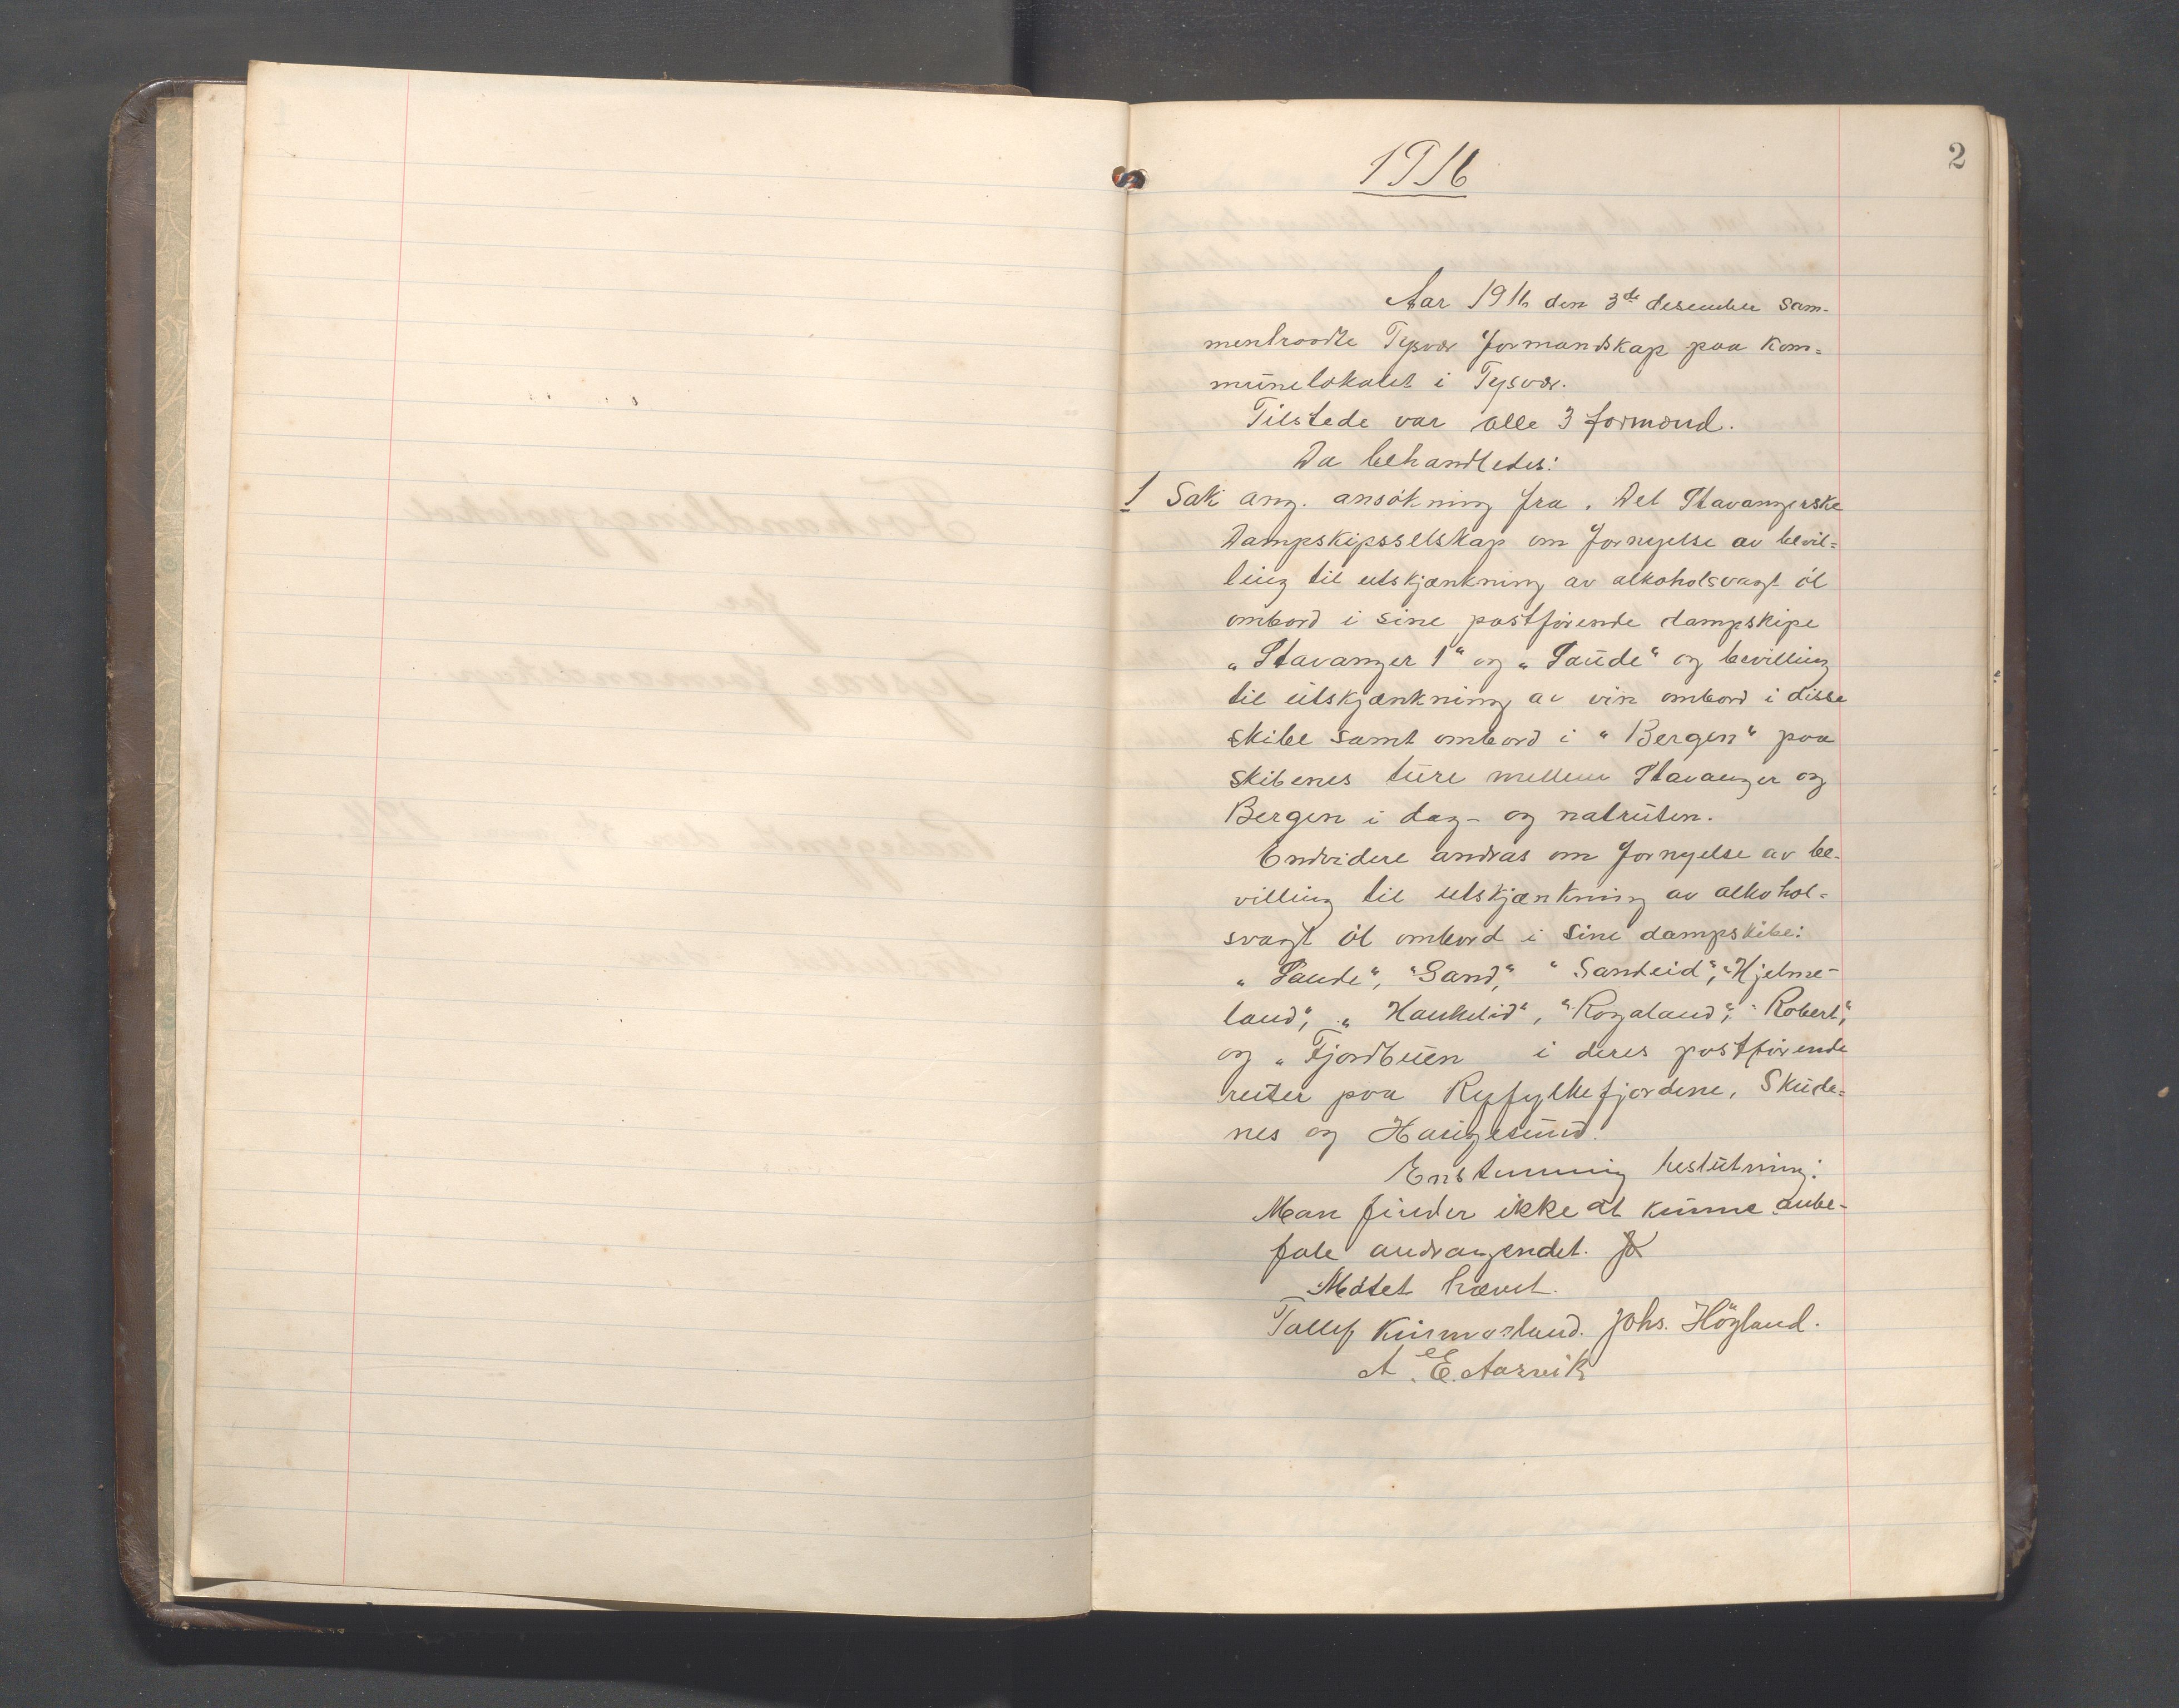 2
1916
Aar 1916 den 3de desember sam-
mentraadte Tysvær formandskap paa kom=
munelokalet i Tysvær.
Tilstede var alle 3 formænd.
Da behandledes:
1 Sak ang. ansökning fra. Det Stavangerske
Dampskipsselskap om fornyelse av bevil=
ling til utskjænkning av alkoholsvagt öl
ombord i sine postförende dampskipe
„Stavanger 1“ og „Saude“ og bevilling
til utskjænkning av vin ombord i disse
skibe samt ombord i “Bergen“ paa
skibenes ture mellem Stavanger og
Bergen i dag- og natruten.
Endvidere andras om fornyelse av be-
villing til utskjænkning av alkohol=
svagt öl ombord i sine dampskibe:
„Saude“, “Sand,“ “Sandeid“, “Hjelme-
land“, „Haukelid“, “Rogaland“, “Robert“,
og „Fjordbuen i deres postförende
ruter paa Ryfylkefjordene, Skude=
nes og Haugesund.
Enstemmig beslutning:
Man finder ikke at kunne anbe-
fale andragendet.
Mötet hævet.
Tollef Kinmarland. Johs. Högland.
A. E. Aasvik